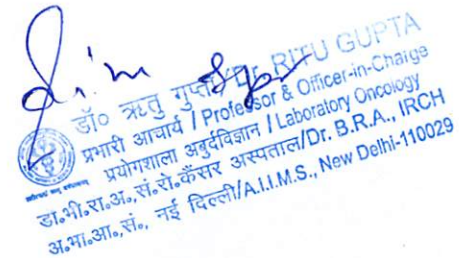 डॉ० ऋतु गुप्ता/Dr. RITU GUPTA
प्रभारी आचार्य / Professor & Officer-in-Charge
प्रयोगशाला अबुर्दविज्ञान / Laboratory Oncology
डा.भी.रा.अ.,सं.रो.कैंसर अस्पताल/Dr. B.R.A., IRCH
अ.भा.आ.,सं., नई दिल्ली/A.I.I.M.S., New Delhi-110029